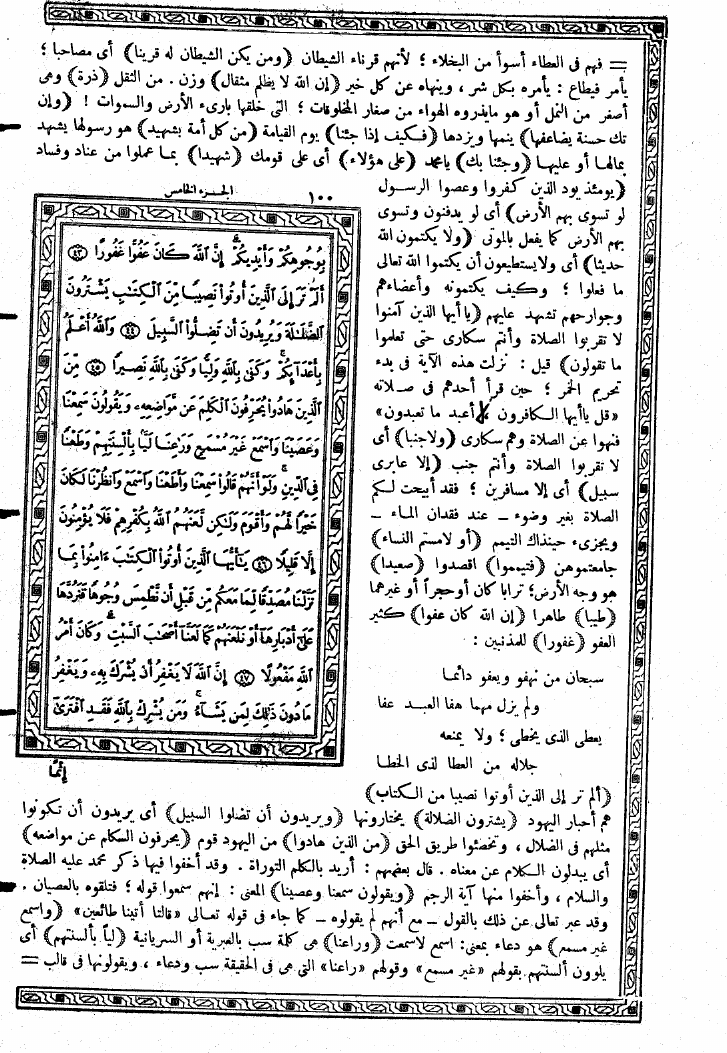 = فهم فى العطاء أسوأ من البخلاء ؛ لأنهم قرناء الشيطان (ومن يكن الشيطان له قرينا) أى مصاحبا ؛
يأمر فيطاع : يأمره بكل شر ، وينهاه عن كل خير (إن الله لا يظلم مثقال) وزن . من الثقل (ذرة) وهى
أصغر من النمل أو هو مايذروه الهواء من صغار المخلوقات ؛ التى خلقها بارىء الأرض والسموات ! (وإن
تك حسنة يضاعفها) ينمها ويزدها (فكيف إذا جئنا) يوم القيامة (من كل أمة بشهيد) هو رسولها يشهد
بمالها أو عليها (وجئنا بك) يامحمد (على هؤلاء) أى على قومك (شهيدا) بما عملوا من عناد وفساد
(يومئذ يود الذين كفروا وعصوا الرسول
لو تسوى بهم الأرض) أى لو يدفنون وتسوى
بهم الأرض كما يفعل بالموتى (ولا يكتمون الله
حديثا) أى ولايستطيعون أن يكتموا الله تعالى
ما فعلوا ؛ وكيف يكتمونه وأعضاءهم
وجوارحهم تشهد عليهم (ياأيها الذين آمنوا
لا تقربوا الصلاة وأنتم سكارى حتى تعلموا
ما تقولون) قيل : نزلت هذه الآية فى بدء
تحريم الخمر ؛ حين قرأ أحدهم فى صلاته
«قل ياأيها الكافرون أعبد ما تعبدون»
فنهوا عن الصلاة وهم سكارى (ولاجنبا) أى
لا تقربوا الصلاة وأنتم جنب (إلا عابرى
سبيل) أى إلا مسافرين ؛ فقد أبيحت لكم
الصلاة بغير وضوء - عند فقدان الماء -
ويجزىء حينذاك التيمم (أو لامستم النساء)
جامعتموهن (فتيمموا) اقصدوا (صعيدا)
هو وجه الأرض؛ ترابا كان أوحجراً أو غيرهما
(طيبا) طاهرا (إن الله كان عفوا) كثير
العفو (غفورا) للمذنبين :
سبحان من نهفو ويعفو دائما
ولم يزل مهما هفا العبد عفا
يعطى الذى يخطى ؛ ولا يمنعه
جلاله من العطا لذى الخطا
(ألم تر إلى الذين أوتوا نصيبا من الكتاب)
هم أحبار اليهود (يشترون الضلالة) يختارونها (ويريدون أن تضلوا السبيل) أى يريدون أن تكونوا
مثلهم فى الضلال ، وتخطئوا طريق الحق (من الذين هادوا) من اليهود قوم (يحرفون الكلم عن مواضعه)
أى يبدلون الكلام عن معناه . قال بعضهم : أريد بالكلم التوراة . وقد أخفوا فيها ذكر محمد عليه الصلاة
والسلام ، وأخفوا منها آية الرجم (ويقولون سمعنا وعصينا) المعنى : إنهم سمعوا قوله ؛ فتلقوه بالعصيان .
وقد عبر تعالى عن ذلك بالقول - مع أنهم لم يقولوه - كما جاء فى قوله تعالى «قالتا أتينا طائعين» (واسمع
غير مسمع) هو دعاء بمعنى: اسمع لاسمعت (وراعنا) هى كلمة سب بالعبرية أو السريانية (لياً بألسنتهم) أى
يلوون ألسنتهم بقولهم «غير مسمع» وقولهم «راعنا» التى هى فى الحقيقة سب ودعاء ، ويقولونها فى قالب =
١٠٠ الجزء الخامس
بِوُجُوهِكُمْ وَأَيْدِيكُمْ إِنَّ اللَّهَ كَانَ عَفُوًّا غَفُورًا ٤٣
أَلَمْ تَرَ إِلَى الَّذِينَ أُوتُوا نَصِيبًا مِّنَ الْكِتَابِ يَشْتَرُونَ
الضَّلَالَةَ وَيُرِيدُونَ أَن تَضِلُّوا السَّبِيلَ ٤٤ وَاللَّهُ أَعْلَمُ
بِأَعْدَائِكُمْ وَكَفَى بِاللَّهِ وَلِيًّا وَكَفَى بِاللَّهِ نَصِيرًا ٤٥ مِّنَ
الَّذِينَ هَادُوا يُحَرِّفُونَ الْكَلِمَ عَن مَّوَاضِعِهِ وَيَقُولُونَ سَمِعْنَا
وَعَصَيْنَا وَاسْمَعْ غَيْرَ مُسْمَعٍ وَرَاعِنَا لَيًّا بِأَلْسِنَتِهِمْ وَطَعْنًا
فِي الدِّينِ وَلَوْ أَنَّهُمْ قَالُوا سَمِعْنَا وَأَطَعْنَا وَاسْمَعْ وَانظُرْنَا لَكَانَ
خَيْرًا لَّهُمْ وَأَقْوَمَ وَلَكِن لَّعَنَهُمُ اللَّهُ بِكُفْرِهِمْ فَلَا يُؤْمِنُونَ
إِلَّا قَلِيلًا ٤٦ يَا أَيُّهَا الَّذِينَ أُوتُوا الْكِتَابَ آمِنُوا بِمَا
نَزَّلْنَا مُصَدِّقًا لِّمَا مَعَكُم مِّن قَبْلِ أَن نَّطْمِسَ وُجُوهًا فَنَرُدَّهَا
عَلَى أَدْبَارِهَا أَوْ نَلْعَنَهُمْ كَمَا لَعَنَّا أَصْحَابَ السَّبْتِ وَكَانَ أَمْرُ
اللَّهِ مَفْعُولًا ٤٧ إِنَّ اللَّهَ لَا يَغْفِرُ أَن يُشْرَكَ بِهِ وَيَغْفِرُ
مَا دُونَ ذَلِكَ لِمَن يَشَاءُ وَمَن يُشْرِكْ بِاللَّهِ فَقَدِ افْتَرَى
إِثْمًا